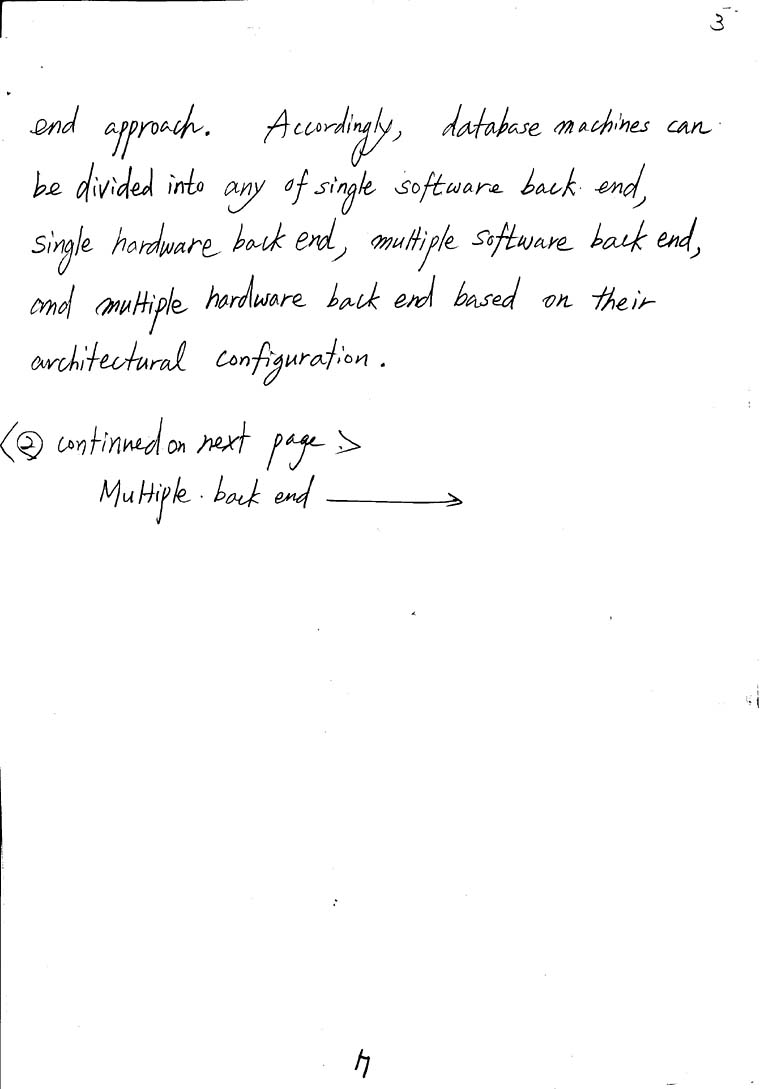 3
end approach. Accordingly, database machines can
be divided into any of single software back end,
single hardware back end, multiple software back end,
and multiple hardware back end based on their
architectural configuration.
<② continued on next page >
Multiple back end →